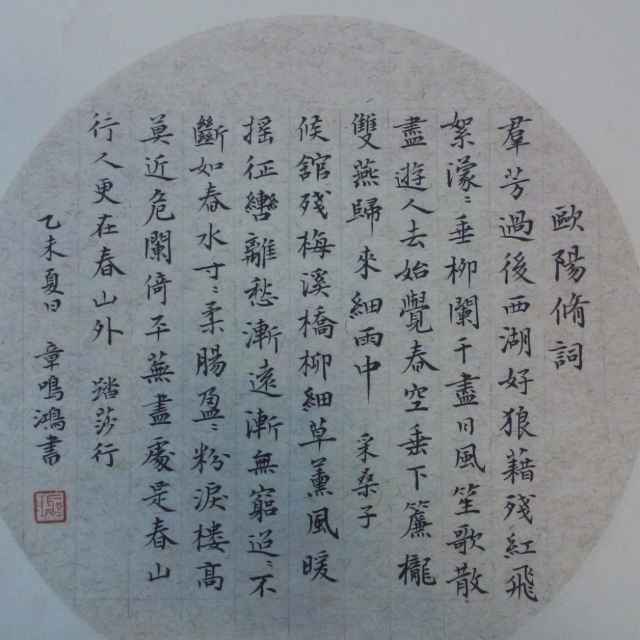 歐陽脩詞
羣芳過後西湖好狼藉殘紅飛
絮濛〻垂柳闌干盡日風笙歌散
盡遊人去始覺春空垂下簾櫳
雙燕歸來細雨中 采桑子
候舘殘梅溪橋柳細草薰風暖
摇征轡離愁漸遠漸無窮迢〻不
斷如春水寸〻柔腸盈〻粉淚楼高
莫近危闌倚平蕪盡處是春山
行人更在春山外 踏莎行
乙未夏日 章鳴鴻書